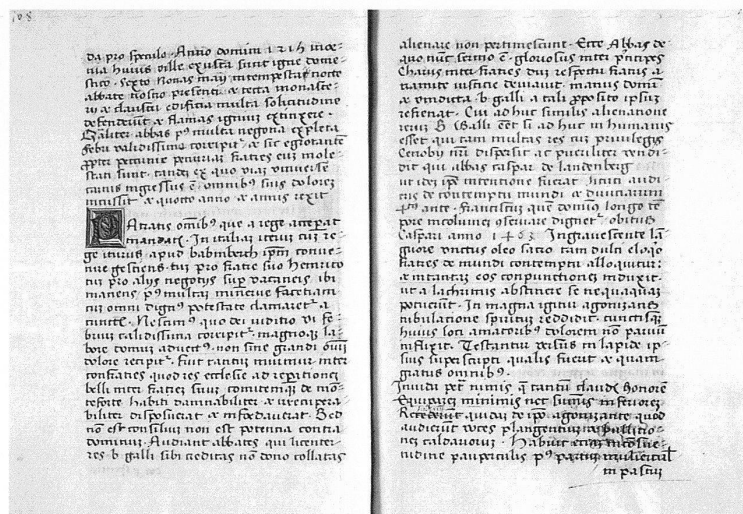 108
da pro speculo. Anno domini 1214 ince-
nia huius ville exusta sunt igne dome-
stico. Sexto Nonas maij intempesta nocte
abbate nostro presenti et tecta monaste-
rij et claustri edificia multa solicitudine
defendente et flamas ignium extinxere.
Qualiter abbas pꝰ multa negotia expleta
febri validissima corripit et sic egrotante
fratres eius mole-
stati sunt. tandem ex quo viam universe
carnis ingressus ē omnibus suis dolorem
incussit et quotto anno et annis rexit
Patratis omībꝰ que a rege acceperat
mandatis. In italiam cum re-
ge iturus apud babinbech ipm conve-
nire gestiens. tum pro fratre suo Heinrico
tum pro alijs negotijs super vacaneis. ibi
manens pꝰ multam
cum omni dignꝰ potestate clamaret a
milite. Nescimꝰ quo dei iuditio vi fe-
brium calidissima corripit. magnoqꝫ la-
bore domum advectꝰ non sine grandi omnium
dolore recipit. fuit tantum inter
confratres quod res ecclesie ad repetitionem
belli inter fratrem suum comitemqꝫ de mō-
teforte habiti damnabiliter et irrecupera-
biliter disposuerat et infeodaverat. Sed
nō est consilium non est potentia contra
dominum. Audiant abbates qui licenter
res b galli sibi creditas nō dono collatas
alienare non pertimescunt. Ecce Abbas de
quo nunc sermo ē. gloriosus inter principes
Charus inter fratres dum respectu fratris a
tramite iusticie deviavit. manus domini
et vindicta b galli a tali proposito ipsum
refrenat. Cui ad huc similis alienatione
rerum B Galli esset si ad huc in humanis
esset qui tam multas res cum privilegijs
Cenobij nostri dispersit ac pueriliter vendi-
dit qui abbas caspar de landenberg
ut idem ipse intentione fuerat sicuti audi-
tum de contemptu mundi et divitiarum
ante. Franciscum quem dominus longo tem-
pore incolumem conservare dignetur obitus
Caspari anno 1463 Ingravescente lā-
gwore unctus oleo sacro tam dulci eloqio
fratres de mundi contemptu alloquitur
et in tantam eos conpunctionem induxit.
ut a lachrimis abstinere se nequaquam
potuerint. In magna igitur agonizans
tribulatione spiritum reddidit. cunctisqꝫ
huius loci amatoribꝰ dolorem nō parvum
inflixit. Testantur versus in lapide ip-
sius superscripti qualis fuerit et quam
gratus omnibꝰ.
Invidam petram nimis que tantum claudis honorem
Equiparet minimis nec summis inferiorem
quidam de ipso agonizante quod
audierint voces plangentium
caldariorum. Habuit enim in consue-
tudine pauperculis pꝰ partum
in pascu